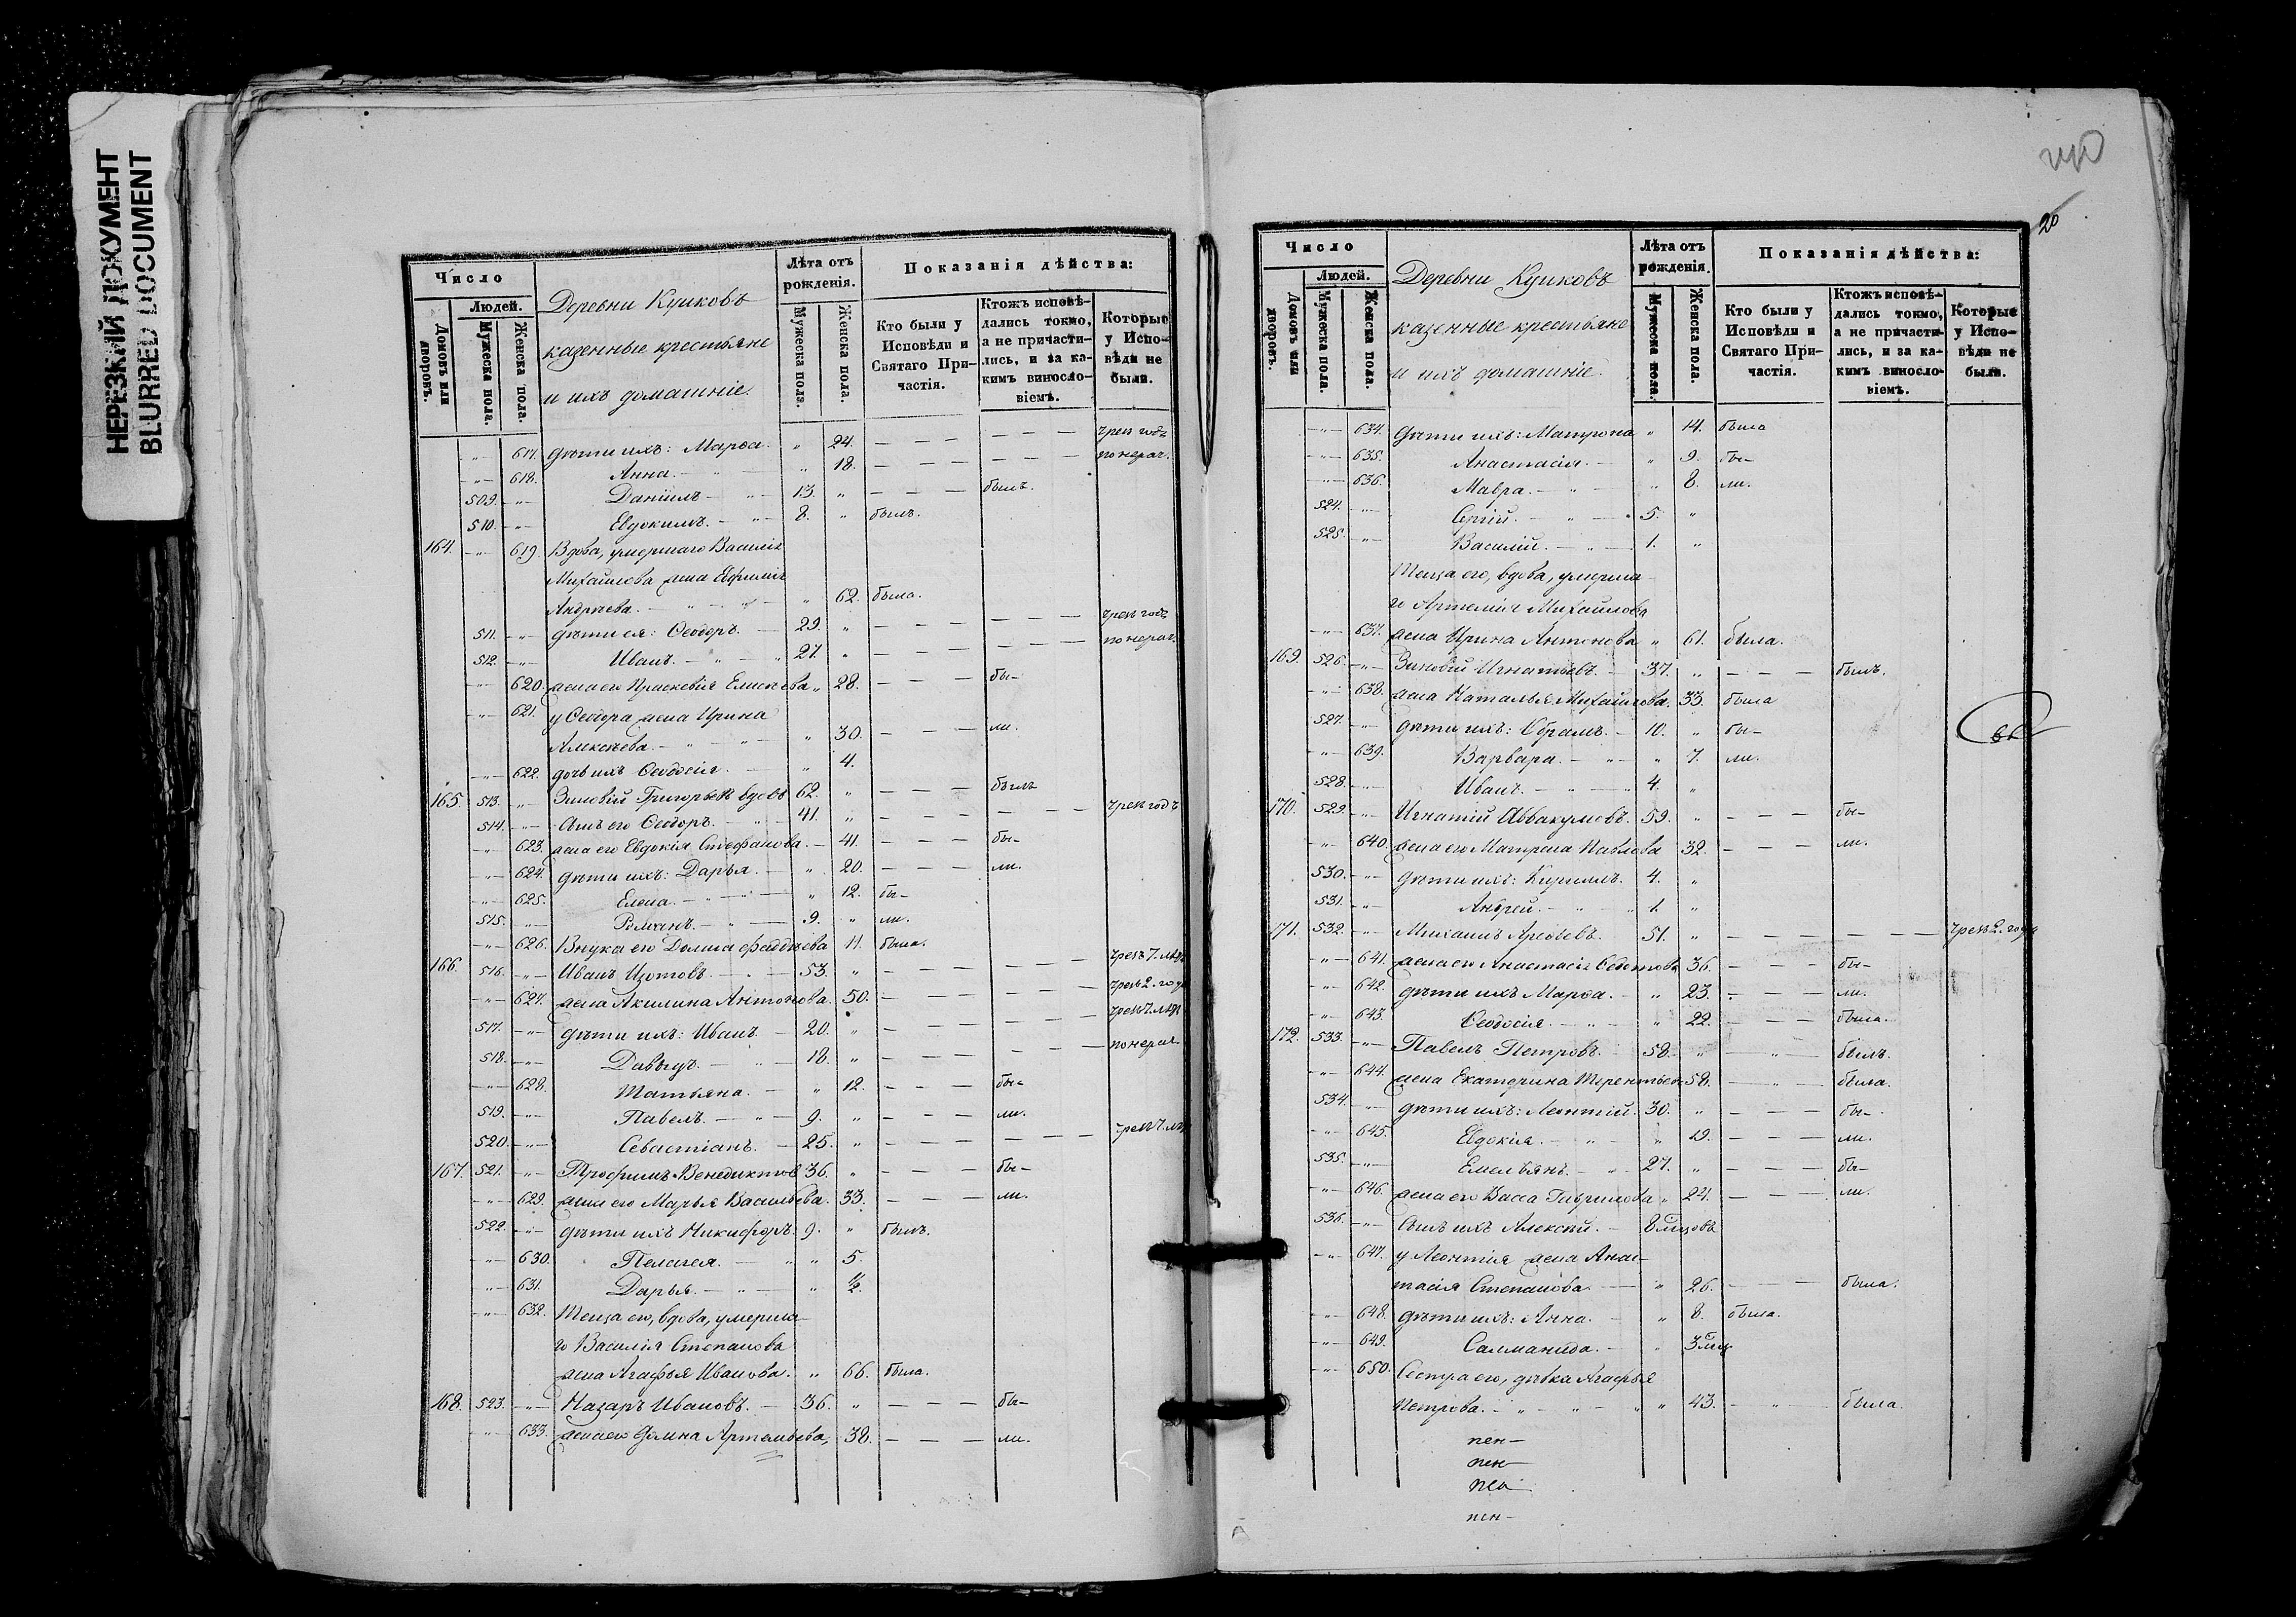 НЕРЕЗКИЙ ДОКУМЕНТ
BLURRED DOCUMENT
Число
Людей.
Домовъ или дворовъ.
Мужеска пола.
Женска пола.
Деревни Куиковъ
казенные крестьяне
и ихъ домашніе.
Лѣта отъ рожденія.
Мужеска пола.
Женска пола.
Показанія дѣйства:
Кто были у Исповѣди и Святаго Причастія.
Ктожъ исповѣдались токмо, а не причастились, и за какимъ винословіемъ.
Которые у Исповѣди не были.
-"- 617. дѣти ихъ: Марѳа. " 24. — — — — — — чрез годъ
-"- 618. Анна. — " 18. — — — — — — по нерач.
509. -"- Даніилъ — " — 13. " — — — былъ.
510. -"- Евдокимъ. — " — 8. " былъ.
164. -"- 619. Вдова, умершаго Василія
Михайлова жена Евфимія
Андреева. — " — " — " 62. была.
511. -"- дѣти ея: Ѳеодоръ. — 29. " — — — — — — чрез годъ
512. -"- Иванъ. — " — " 27. " — — — — — — по нерач.
-"- 620. жена его Праскевія Елисѣева " 28. — — — бы-
-"- 621. у Ѳеодора жена Ирина
Алексѣева. — " — " — " 30. — — — ли.
-"- 622. дочь ихъ Ѳеодосія. — " 4.
165. 513. -"- Зиновій Григорьевъ вдовъ 62. " — — — былъ
514. -"- Сынъ его Ѳеодоръ. — " — 41. " — — — — — — чрез годъ
-"- 623. жена его Евдокія Стефанова. — 41. — — — бы-
-"- 624. дѣти ихъ: Дарья. — " 20. — — — ли.
-"- 625. Елена. — " — " — " 12. бы-
515. -"- Романъ. — " — 9. " ли.
-"- 626. Внука его Домна Фаддѣева 11. была.
166. 516. -"- Иванъ Изотовъ. — " — 53. " — — — — — — чрез 7. лѣтъ
-"- 627. жена Акилина Антонова. 50. — — — — — — чрез 2. года
517. -"- дѣти ихъ: Иванъ. — 20. " — — — — — — чрез 7. лѣтъ
518. -"- Давыдъ. — " — 18. " — — — — — — по нерач.
-"- 628. Татьяна. — " 12. — — — бы-
519. -"- Павелъ. — " — 9. " — — — ли.
520. -"- Севастіанъ. — 25. " — — — — — — чрез 7. лѣтъ
167. 521. -"- Трофимъ Венедиктов 36. " — — — бы-
-"- 629. жена его Марья Васильева. 33. — — — ли.
522. -"- дѣти ихъ Никифоръ. 9. " былъ.
-"- 630. Пелагея. — " " 5.
-"- 631. Дарья. — " — " ½.
-"- 632. Теща его, вдова, умерша-
го Василія Степанова
жена Агафья Иванова. " 66. была.
168. 523. -"- Назаръ Ивановъ. — 36. " — — — бы-
-"- 633. жена его Домна Артемьева, 38. — — — ли.
20
Число
Людей.
Домовъ или дворовъ.
Мужеска пола.
Женска пола.
Деревни Куиковъ
казенные крестьяне
и ихъ домашніе.
Лѣта отъ рожденія.
Мужеска пола.
Женска пола.
Показанія дѣйства:
Кто были у Исповѣди и Святаго Причастія.
Ктожъ исповѣдались токмо, а не причастились, и за какимъ винословіемъ.
Которые у Исповѣди не были.
-"- 634. дѣти ихъ: Матрона " 14. была
-"- 635. Анастасія. — " 9. бы-
-"- 636. Мавра. — " — " 8. ли.
524. -"- Сергій. — " — 5. "
525. -"- Василій. — " — 1. "
Теща его, вдова, умерша-
го Артемія Михайлова
-"- 637. жена Ирина Антонова " 61. была.
169. 526. -"- Зиновій Игнатьевъ. — 37. " — — — былъ.
-"- 638. жена Наталья Михайлова. 33. была
527. -"- дѣти ихъ: Абрамъ. — 10. " бы-
-"- 639. Варвара. — " — " 7. ли.
528. -"- Иванъ. — " — " 4. "
170. 529. -"- Игнатій Аввакумовъ. 59. " — — — бы-
-"- 640. жена его Матрена Павлова 32. — — — ли.
530. -"- дѣти ихъ: Кириллъ. 4. "
531. -"- Андрей. — " " 1. "
171. 532. -"- Михаилъ Арефьевъ. 51. " — — — — — — чрез 2. года
-"- 641. жена его Анастасія Ѳедотова 36. — — — бы-
-"- 642. дѣти ихъ Марѳа. — " 23. — — — ли.
-"- 643. Ѳеодосія. — " — " 22. — — — была.
172. 533. -"- Павелъ Петровъ. 58. " — " — былъ.
-"- 644. жена Екатерина Терентьев 58. — " — была.
534. -"- дѣти ихъ: Леонтій. 30. " — — — бы-
-"- 645. Евдокія. — " — " 19. — — — ли.
535. -"- Емельянъ. — " — 27. " — — — бы-
-"- 646. жена его Васса Гаврилова " 24. — — — ли.
536. -"- Сынъ ихъ Алексѣй. — 8 мцовъ
-"- 647. у Леонтія жена Анас-
тасія Степанова — " 26. — — — была.
-"- 648. дѣти ихъ: Анна. — " 8. была.
-"- 649. Саломанида. — " 3 мц
-"- 650. Сестра его, дѣвка Агафья
Петрова. — " — " — " " 43. — " — была.
пен-
пен-
пен-
пен-